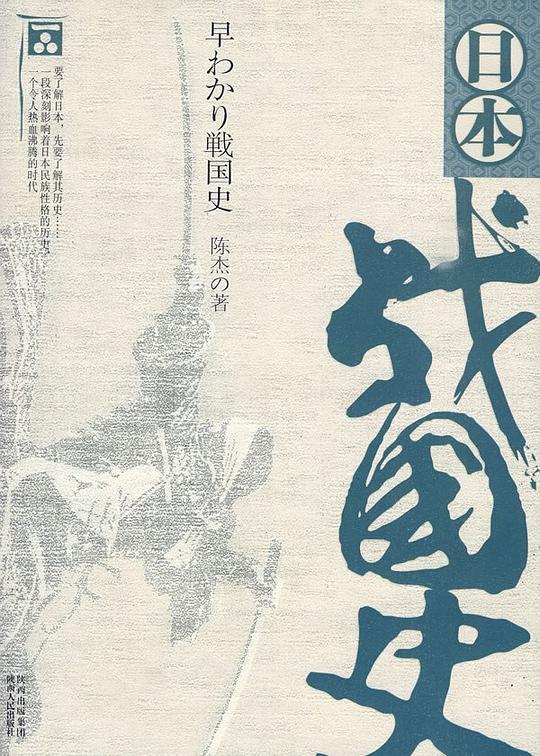 日本
战國史
早わかり戦国史
陈杰の著
要了解日本，先要了解其历史……
一段深刻影响着日本民族性格的历史，
一个令人热血沸腾的时代
陕西出版集团
陕西人民出版社